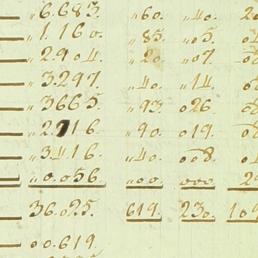 — „ 6.683. „60. „40. 20
— „ 1.160. „85. „05. 08
— „ 2.904. „20. „07. 08
— „ 3.297. „40. „14. 08
— „ 3665. „93. 026. 08
— „ 2.716. „90. 019. 08
— „ 3.416. „„ 008. 01
— „ 0.056. „00. 000. 2
36.025. 619. 230. 109
00.619